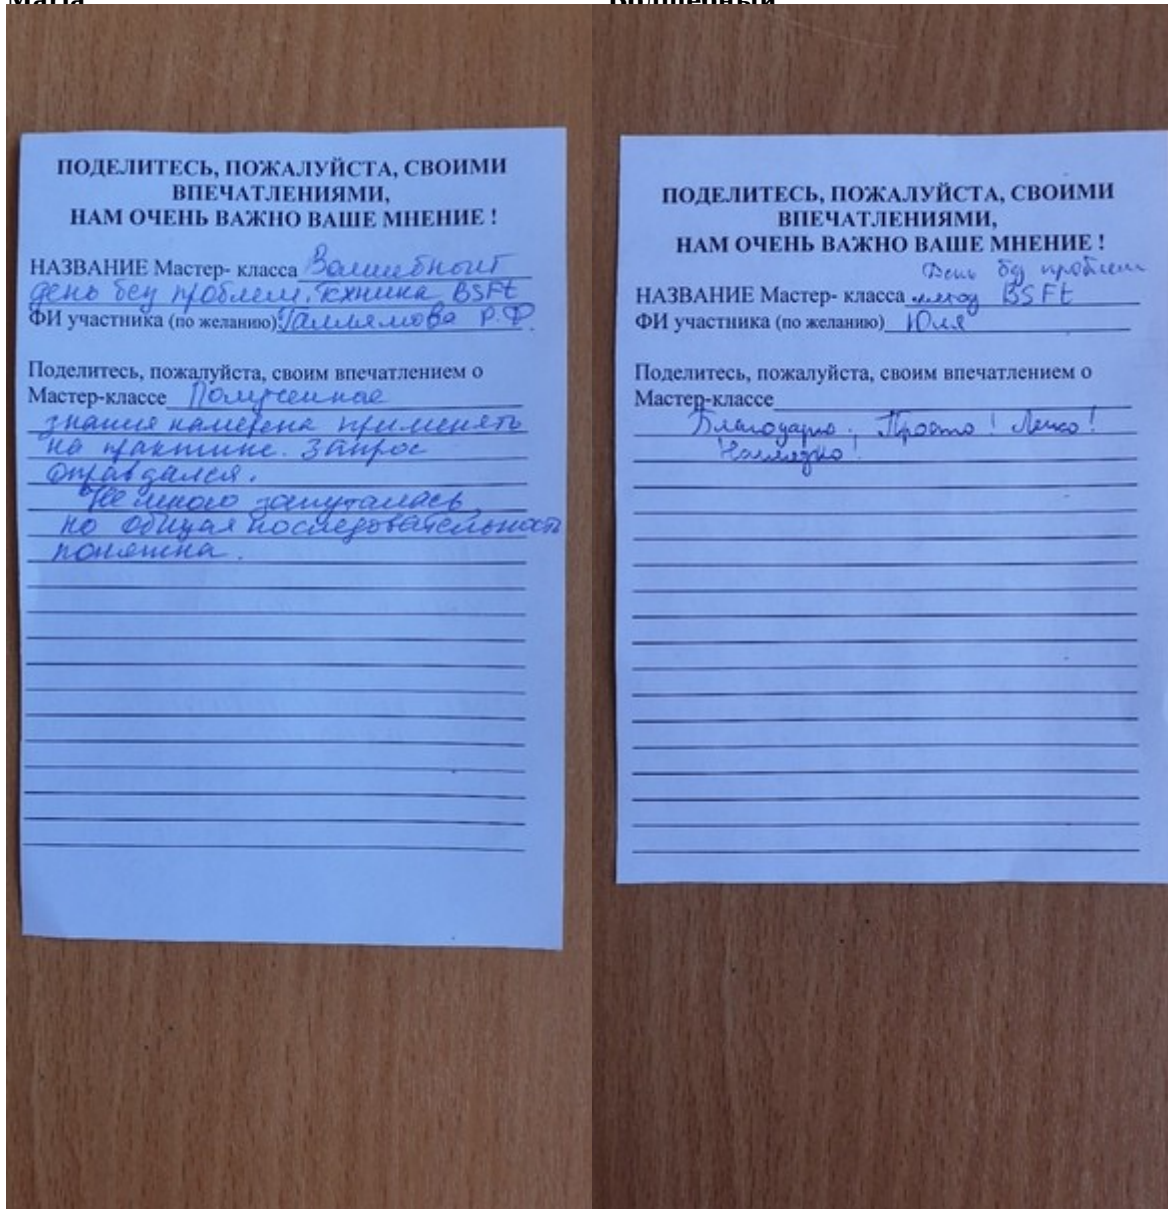 ПОДЕЛИТЕСЬ, ПОЖАЛУЙСТА, СВОИМИ
ВПЕЧАТЛЕНИЯМИ,
НАМ ОЧЕНЬ ВАЖНО ВАШЕ МНЕНИЕ !
НАЗВАНИЕ Мастер- класса Волшебный
день без проблем. Техника BSFt
ФИ участника (по желанию) Галлямова Р.Ф.
Поделитесь, пожалуйста, своим впечатлением о
Мастер-классе Полученные
знания намерена применять
на практике. Запрос
оправдался.
Немного запуталась,
но общая последовательность
понятна.
ПОДЕЛИТЕСЬ, ПОЖАЛУЙСТА, СВОИМИ
ВПЕЧАТЛЕНИЯМИ,
НАМ ОЧЕНЬ ВАЖНО ВАШЕ МНЕНИЕ !
День без проблем
НАЗВАНИЕ Мастер- класса метод BSFt
ФИ участника (по желанию) Юля
Поделитесь, пожалуйста, своим впечатлением о
Мастер-классе
Благодарю. Просто! Легко!
Наглядно!